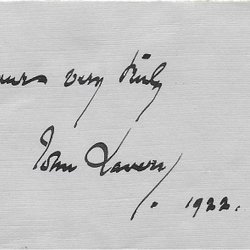 yours very truly
John Lavery
1922.